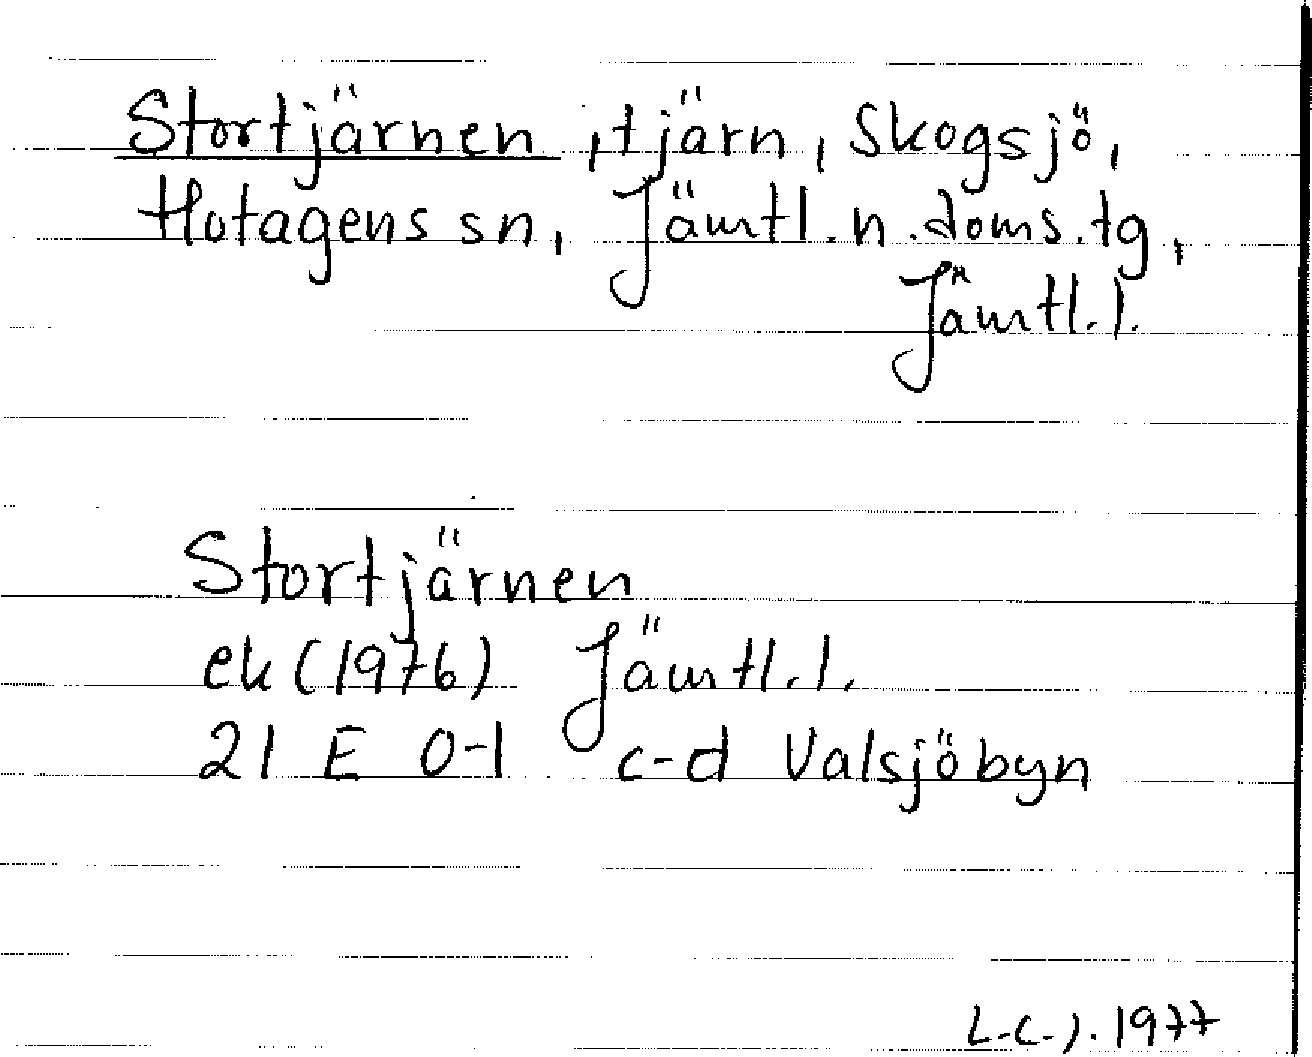 Stortjärnen, tjärn, Skogsjö,
Hotagens sn, Jämtl. n. doms. tg,
Jämtl. l.
Stortjärnen
ek (1976) Jämtl. l.
21 E 0-1 c-d Valsjöbyn
L-C-J. 1977